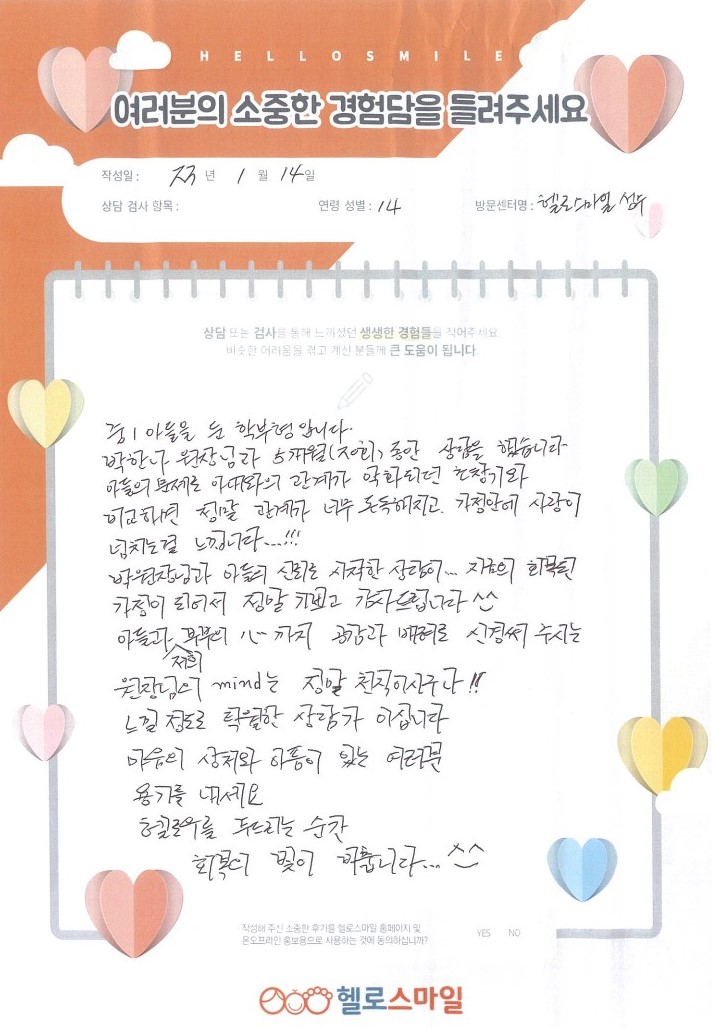 HELLOSMILE
여러분의 소중한 경험담을 들려주세요
작성일 : 년 1 월 14 일
상담 검사 항목 : 연령 성별 : 14 방문센터명 : 헬로스마일 성수
상담 또는 검사를 통해 느끼셨던 생생한 경험들을 적어주세요.
비슷한 어려움을 겪고 계신 분들께 큰 도움이 됩니다.
중1 아들을 둔 학부형입니다.
박한나 원장님과 5개월(20회) 동안 상담을 했습니다
아들의 문제로 아빠와의 관계가 악화되던 초창기와
비교하면 정말 관계가 너무 돈독해지고. 가정안에 사랑이
넘치는걸 느낍니다...!!!
박원장님과 아들의 신뢰로 시작한 상담이... 지금의 회복된
가정이 되어서 정말 기쁘고 감사드립니다 ^^
아들과 저희 부부의 心까지 공감과 배려로 신경써 주시는
원장님의 mind는 정말 천직이시구나!!
느낄 정도로 탁월한 상담가 이십니다
마음의 상처와 아픔이 있는 여러분
용기를 내세요
헬로스마일를 두드리는 순간
회복의 빛이 비춥니다... ^^
작성해 주신 소중한 후기를 헬로스마일 홈페이지 및
온오프라인 홍보용으로 사용하는 것에 동의하십니까? YES NO
헬로스마일